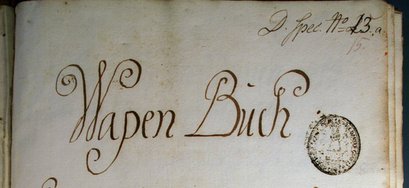 D. Spec. No 13.a
15.
Wapen Bùch